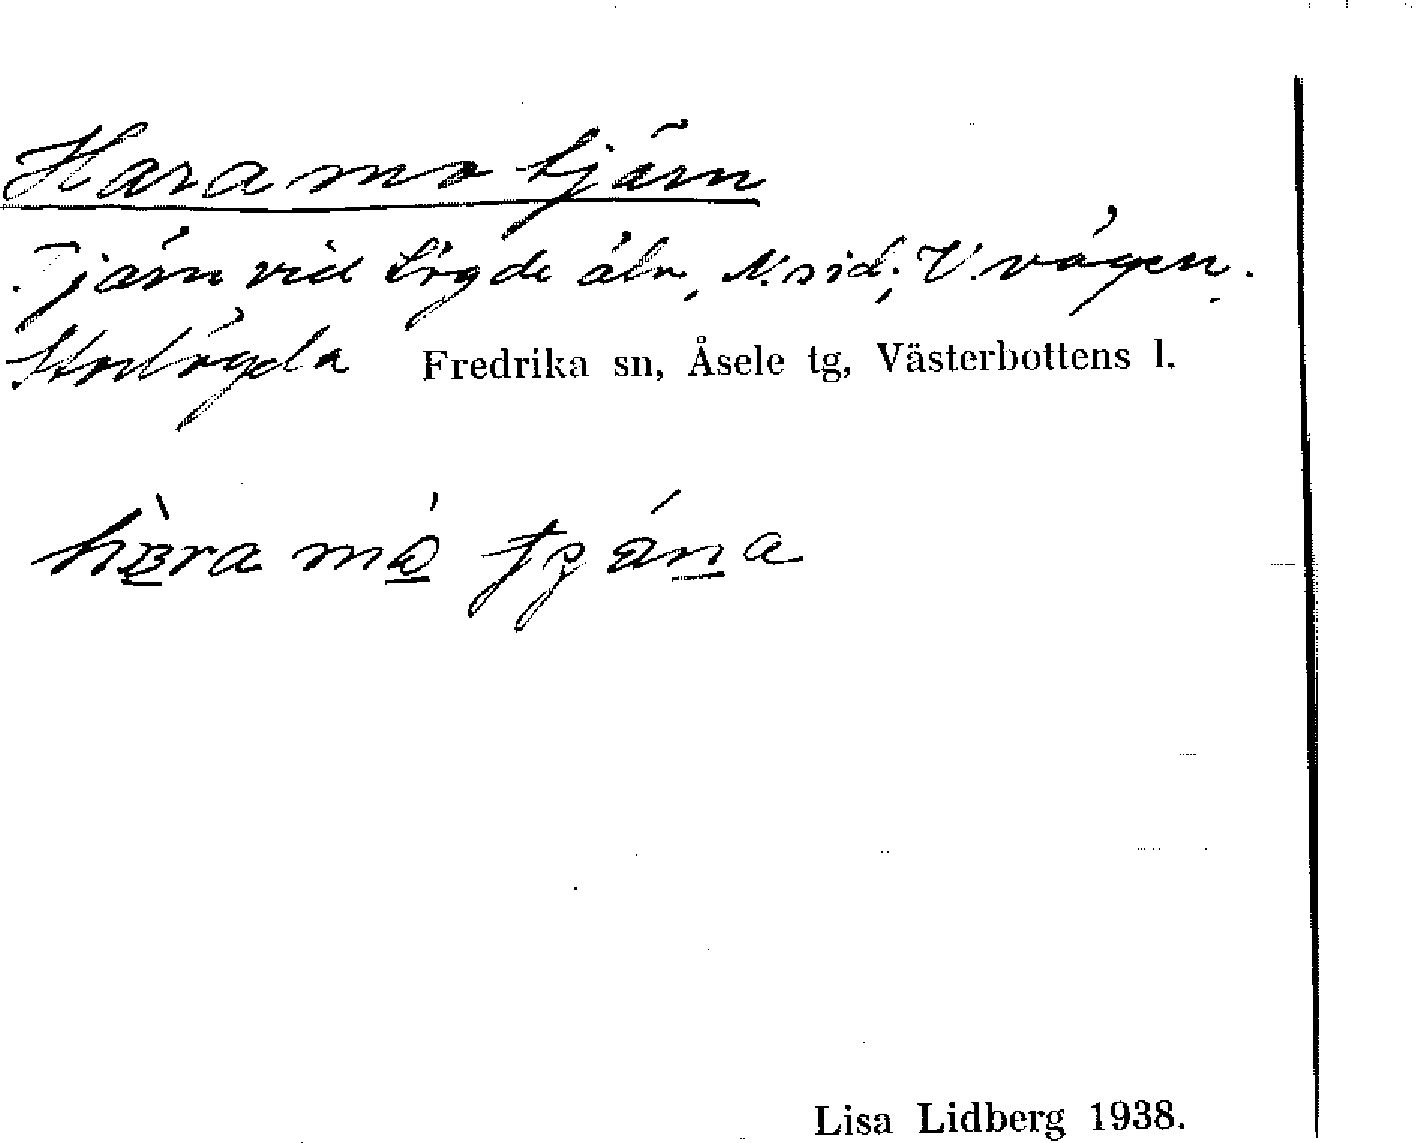 Haramotjärn
Tjärn vid Lögde älv, N. sid, V. vägen.
Storlögda Fredrika sn, Åsele tg, Västerbottens l.
Lisa Lidberg 1938.